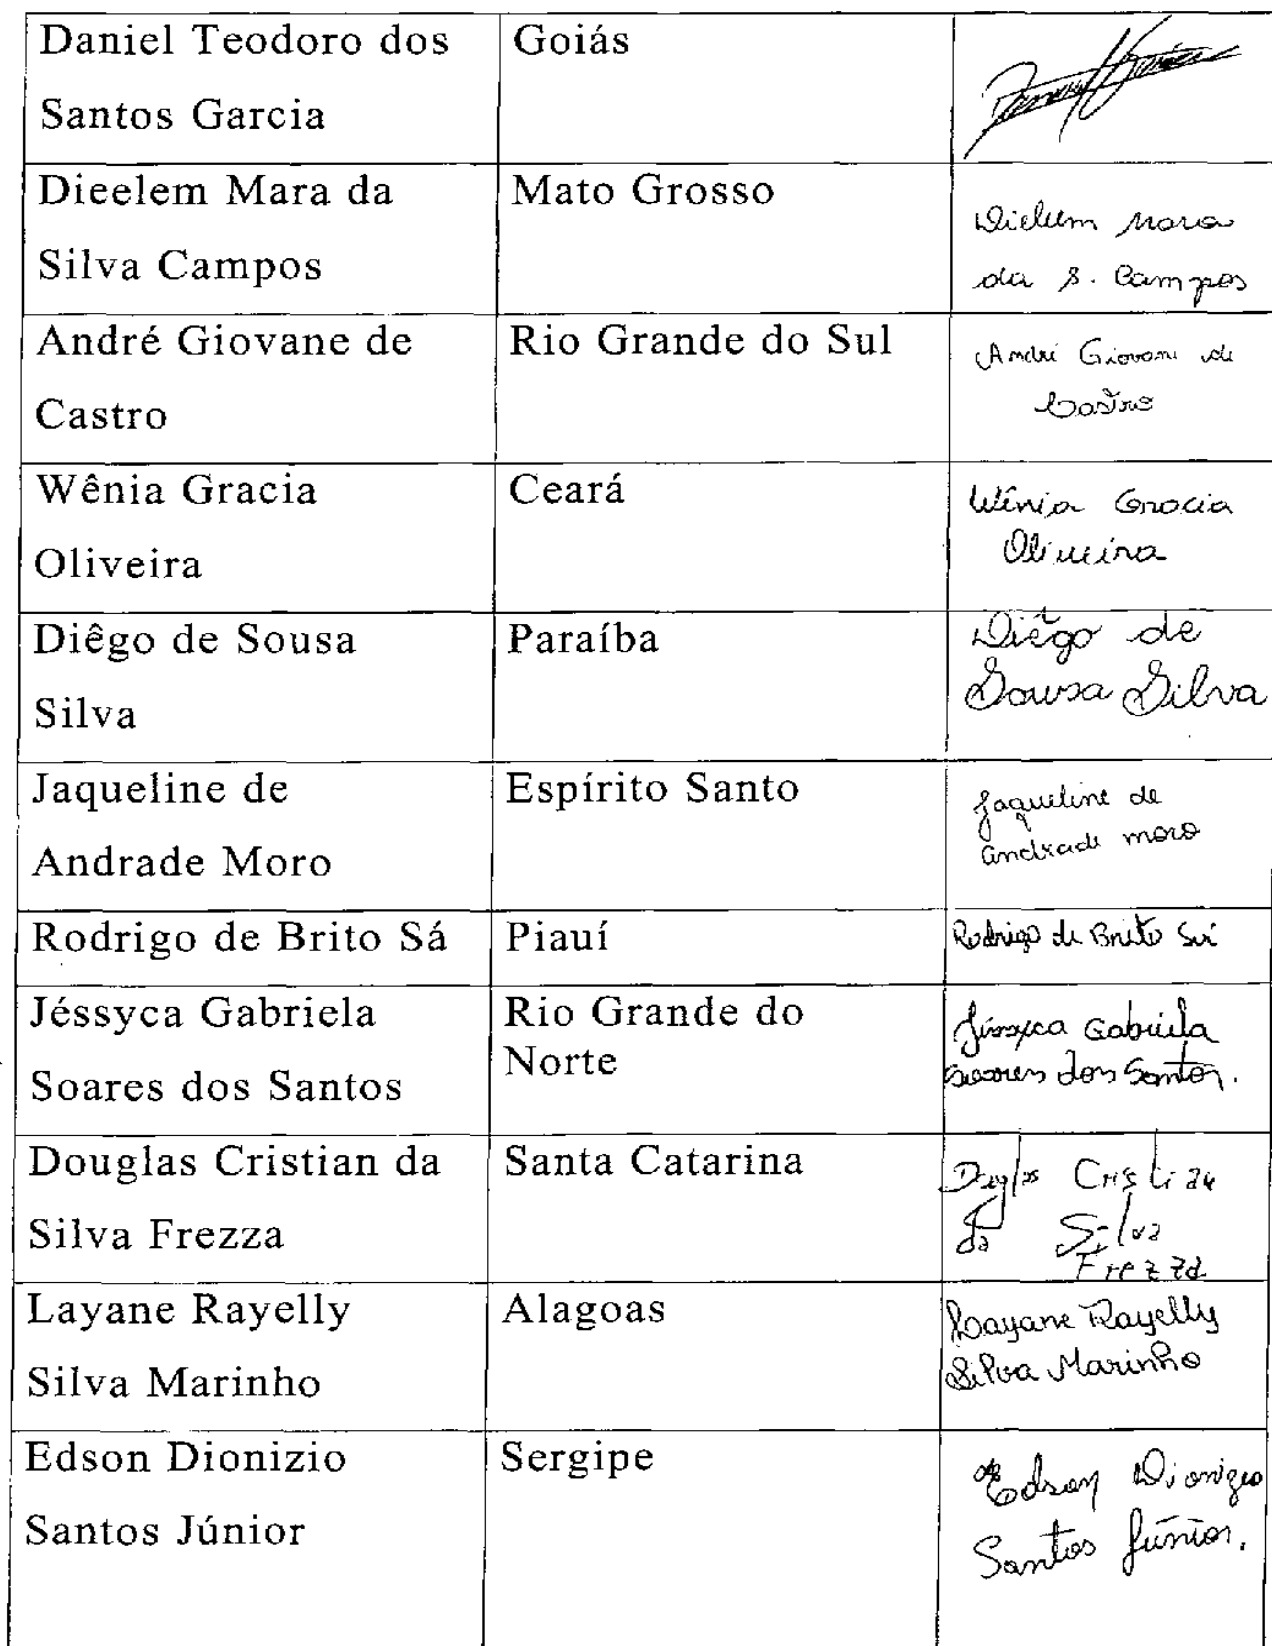 Daniel Teodoro dos
Santos Garcia
Goiás
Dieelem Mara da
Silva Campos
Mato Grosso
Dielem Mara
da S. Campos
André Giovane de
Castro
Rio Grande do Sul
André Giovane de
Castro
Wênia Gracia
Oliveira
Ceará
Wênia Gracia
Oliveira
Diêgo de Sousa
Silva
Paraíba
Diêgo de
Sousa Silva
Jaqueline de
Andrade Moro
Espírito Santo
Jaqueline de
Andrade Moro
Rodrigo de Brito Sá
Piauí
Rodrigo de Brito Sá
Jéssyca Gabriela
Soares dos Santos
Rio Grande do
Norte
Jéssyca Gabriela
Soares dos Santos.
Douglas Cristian da
Silva Frezza
Santa Catarina
Douglas Cristian
da Silva
Frezza
Layane Rayelly
Silva Marinho
Alagoas
Layane Rayelly
Silva Marinho
Edson Dionizio
Santos Júnior
Sergipe
Edson Dionizio
Santos Júnior.